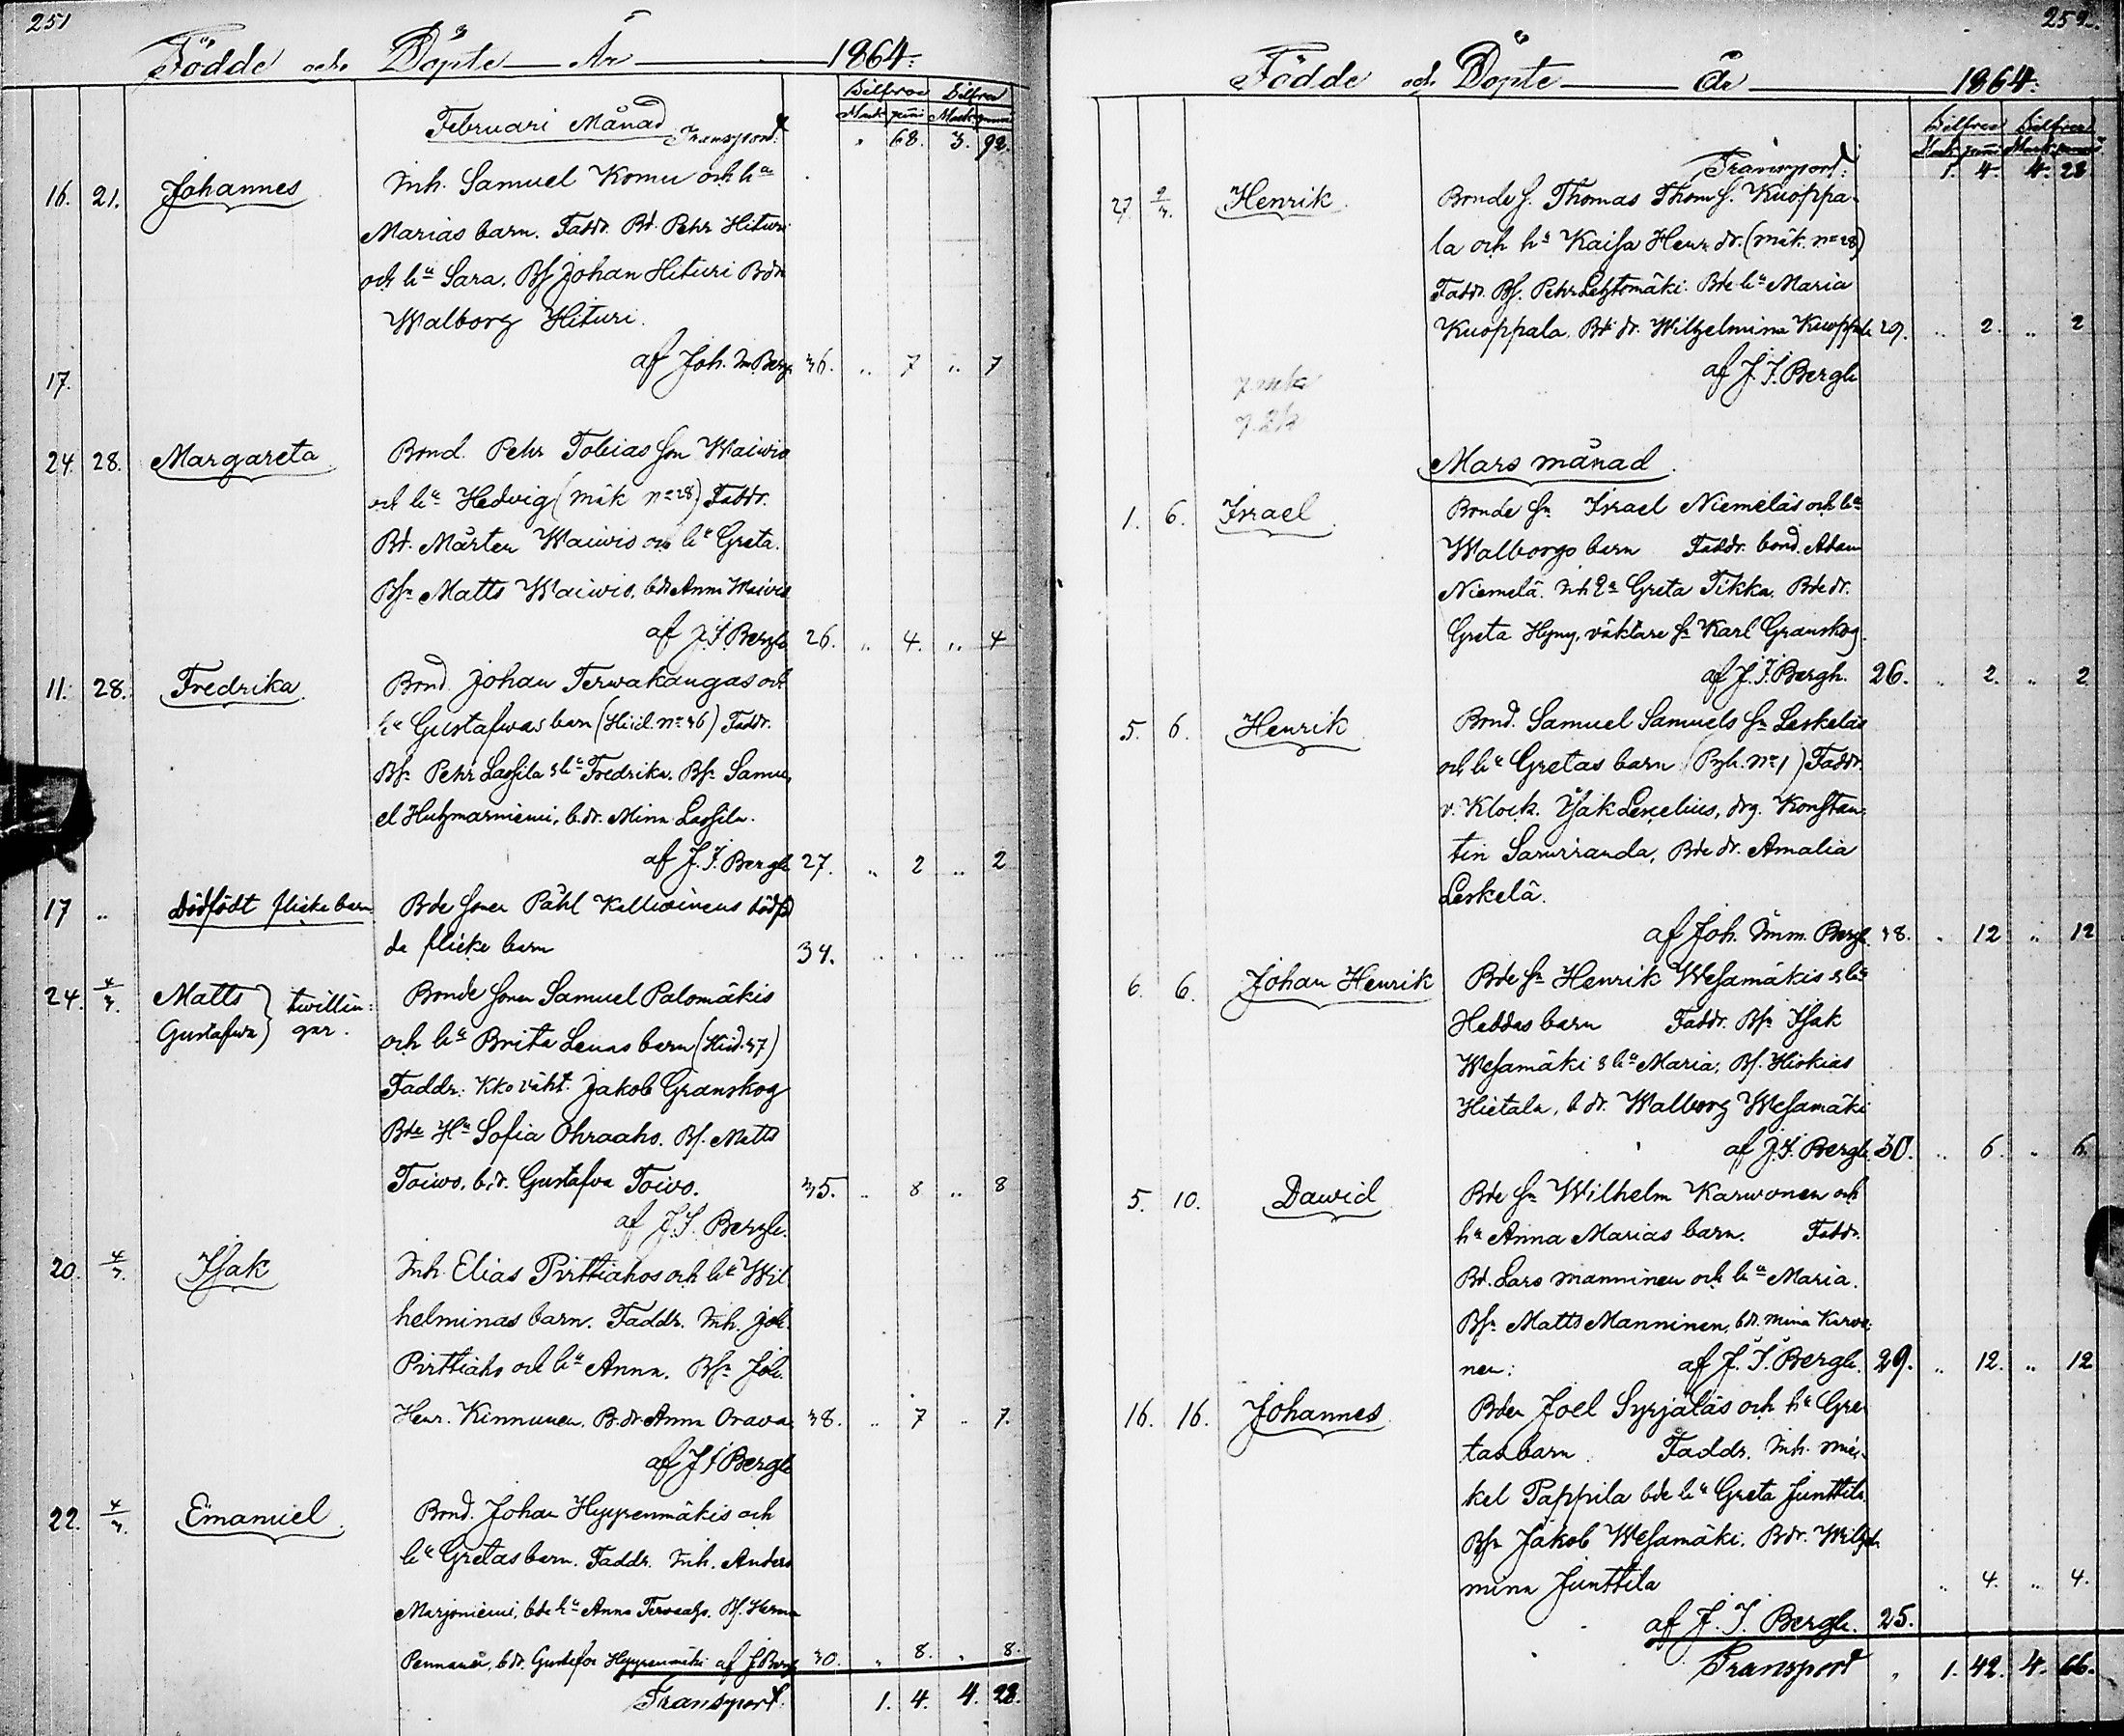 251
Födde och Döpte År 1864.
Silfver Silfver
Februari Månad Mark penni Mark penni
Transport. " 68. 3. 92.
16. 21. Johannes Inh. Samuel Komu och hu
Marias barn. Faddr. Bd. Pehr Hituri
och hu Sara, Bs Johan Hituri Bdr
Walborg Hituri.
af Joh. Im Bergh 36. " 7 " 7
17.
24. 28. Margareta Bond. Pehr Tobias son Waiwio
och hu Hedvig (mäk no 28) Faddr.
Bd. Mårten Waiwio och hu Greta.
Bsn Matts Waiwio, bdr Anna Waiwio
af J. I. Bergh 26. " 4. " 4
11. 28. Fredrika Bond. Johan Terwakangas och
hu Gustafwas barn (Hiid. no 36) Faddr.
Bsn Pehr Lassila & hu Fredrika, Bsn Samu
el Huhmarniemi, b.dr. Minna Lassila.
af J. I. Bergh 27. " 2 " 2
17 " Dödfödt flicke barn Bde sonen Påhl Kelloinens dödfö
da flicke barn 34.
24. 4/3. Matts Gustafwa } twillin: gar. Bonde sonen Samuel Palomäkis
och hu Brita Lenas barn (Hiid. 37)
Faddr. Kko väkt. Jakob Granskog
Bde Hu Sofia Ohraaho. Bs. Matts
Toiwo, b.dr. Gustafva Toiwo. 35. " 8 " 8
af J. I. Bergh.
20. 4/3. Isak Inh. Elias Pirttiahos och hu Wil
helminas barn. Faddr. Inh. Joh.
Pirttiaho och hu Anna, Bsn Joh.
Henr. Kinnunen, B.dr. Anna Orava 38. " 7 " 7.
af J I Bergh
22. 4/3. Emanuel Bond. Johan Hyyrenmäkis och
hu Gretas barn. Faddr. Inh. Anders
Marjoniemi, bde hu Anna Tervaaho, Bs. Herma
Pennanen, bdr. Gustafva Hyyrenmäki af J Bergh 30. " 8. " 8.
Transport. 1. 4. 4. 28.
252.
Födde och Döpte År 1864.
Silfver Silfver
Mark penni Mark penni
Transport: 1. 4. 4. 28
27 2/3. Henrik Bonde s. Thomas Thom s. Kuoppa-
la och hu Kaisa Henr. dr. (mäk. no 28)
Faddr. Bs. Pehr Lehtomäki. Bde hu Maria
Kuoppala, Bd dr. Wilhelmina Kuoppala 29. " 2. " 2
af J. I. Bergh
Mars månad.
1. 6. Israel Bonde sn Israel Niemeläs och hu
Walborgs barn Faddr. bond. Adam
Niemelä. Inh Ea Greta Tikka. Bde dr.
Greta Hyny, väktare sn Karl Granskog.
af J. I. Bergh. 26. " 2. " 2
5. 6. Henrik Bond. Samuel Samuels sn Leskeläs
och hu Gretas barn (Pyh. no 1) Faddr.
v. Klock. Isak Lencelius, drg. Konstan-
tin Saruranda, Bde dr. Amalia
Leskelä.
af Joh. Imm. Bergh. 38. " 12 " 12
6. 6. Johan Henrik Bde sn Henrik Wesamäkis & hu
Heddas barn Faddr. Bsn Isak
Wesamäki & hu Maria, Bs. Hiskias
Hietala, b dr. Walborg Wesamäki
af J. I. Bergh. 30. " 6. " 6.
5. 10. Dawid Bde sn Wilhelm Karwonen och
hu Anna Marias barn. Faddr.
Bd. Lars Manninen och hu Maria.
Bsn Matts Manninen, bdr. Mina Karvo:
nen: af J. I. Bergh. 29. " 12. " 12
16. 16. Johannes Bden Joel Syrjäläs och hu Gre
tas barn. Faddr. Inh. Mi-
kel Pappila bde hu Greta Junttila.
Bsn Jakob Wesamäki. Bdr. Wilhel
mina Junttila " 4. " 4.
af J. I. Bergh. 25.
Transport " 1. 42. 4. 66.